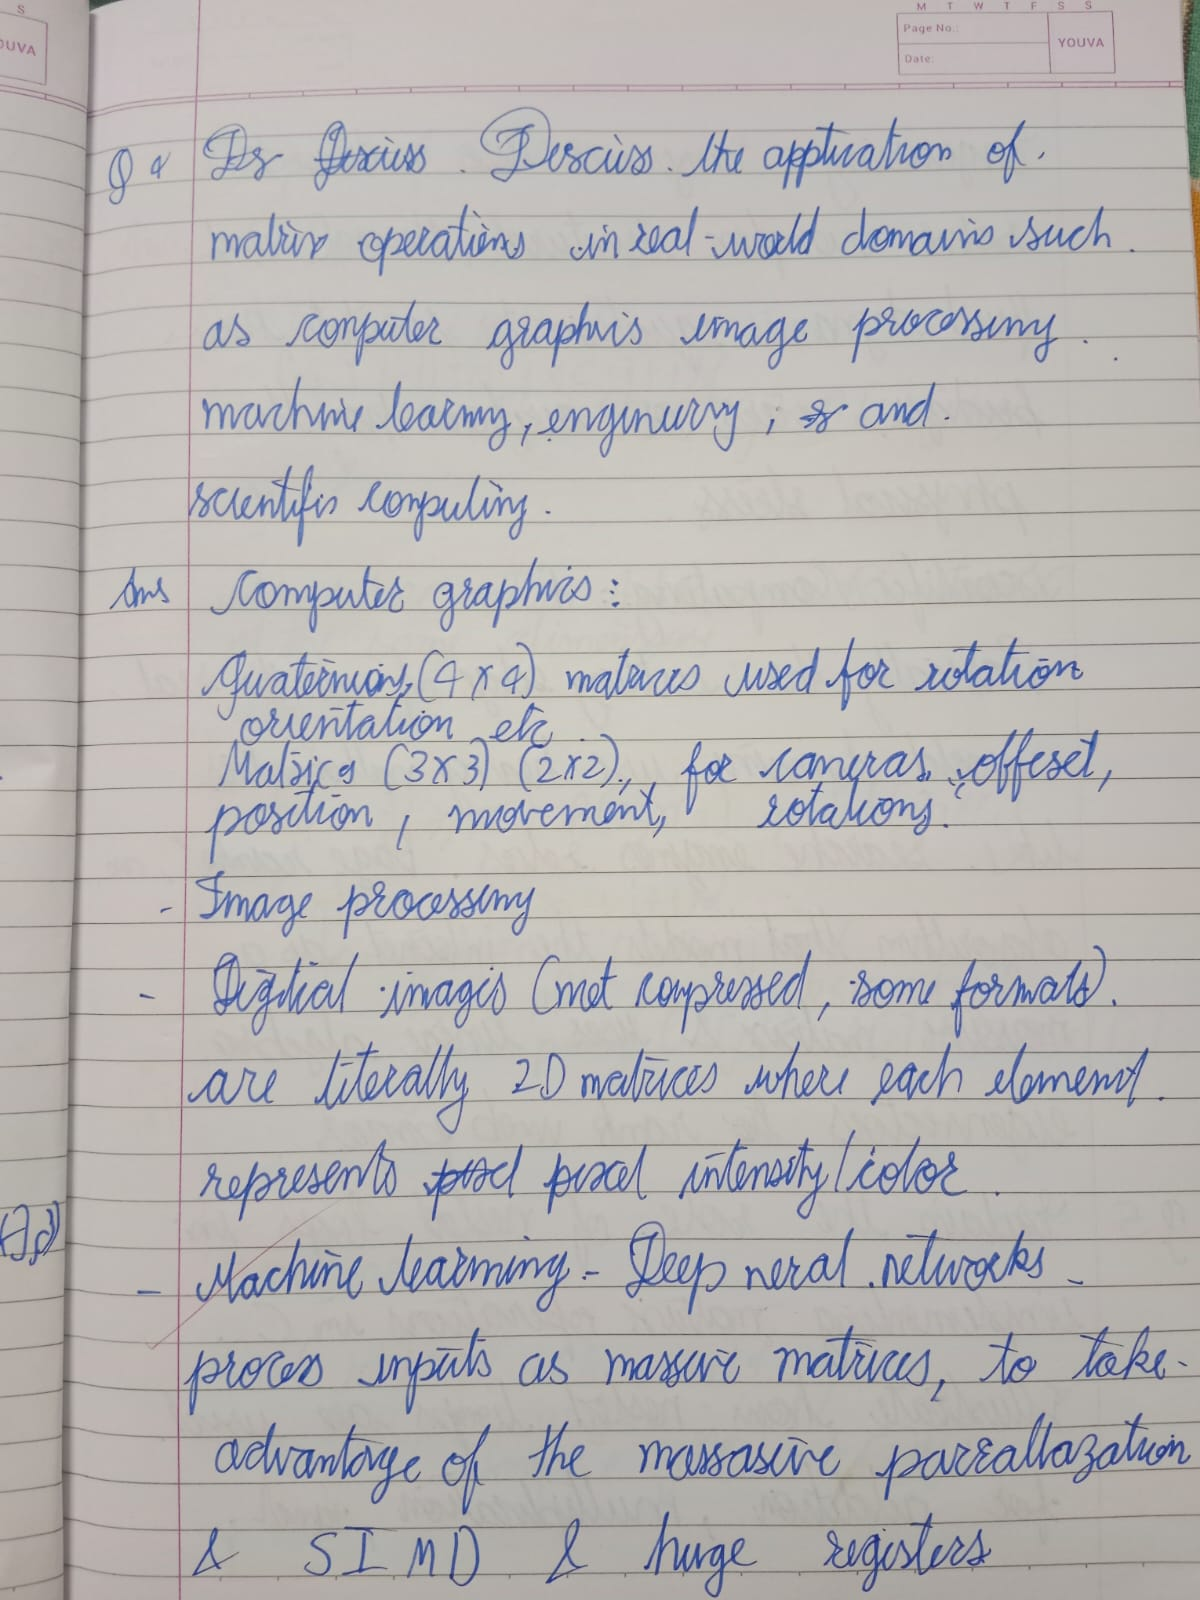 S
OUVA
M T W T F S S
Page No.:
YOUVA
Date:
Q 4 Ds Discuss. Discuss. the application of.
matrix operations in real-world domains such.
as computer graphics image processing.
machine learning, engineering, and.
scientific computing.
Ans Computer graphics:
Quaternions, (4x4) matrices used for rotation
orientation etc.
Matrices (3x3) (2x2)., for cameras, offeset,
position, movement, rotations.
- Image processing
- Digitial images (not compressed, some formats).
are literally 2D matrices where each element.
represents pixel pixel intensity/color.
- Machine learning - Deep neral networks -
proces inputs as massive matrices, to take-
advantage of the massasive parrallazation
& SIMD & huge registers